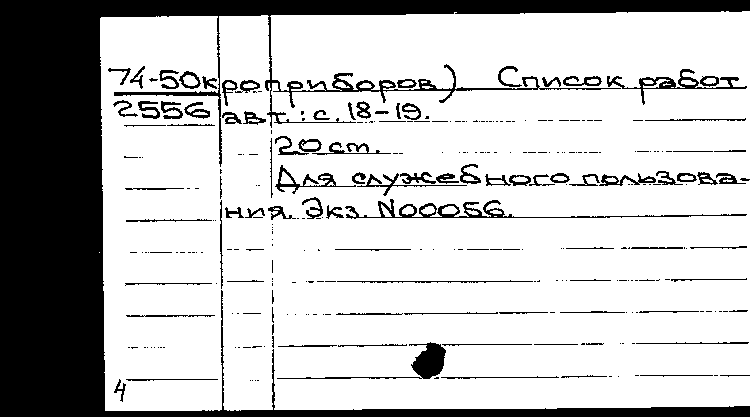 74-50кроприборов) Список работ
2556 авт.: с. 18-19.
20 ст.
Для служебного пользова-
ния. Экз. N00056.
4